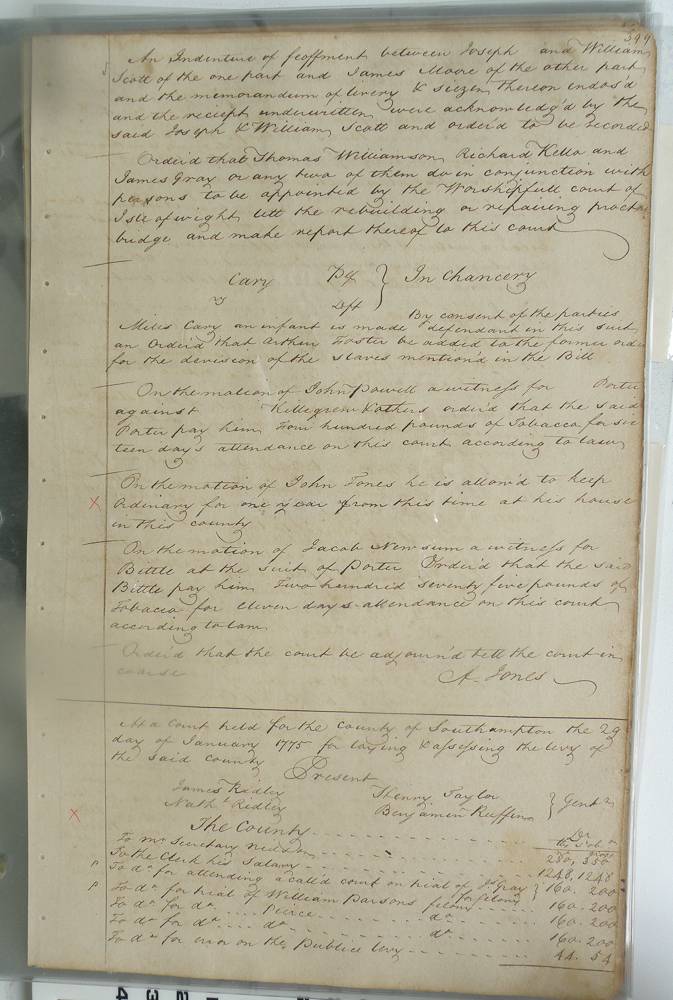 399
An Indenture of feoffment between Joseph and William
Scott of the one part and James Moore of the other part
and the memorandum of livery & seizen thereon indors'd
and the reciept underwritten were acknowledg'd by the
said Joseph & William Scott and order'd to be recorded
Order'd that Thomas Williamson, Richard Kello and
James Gray or any two of them do in conjunction with
persons to be appointed by the Worshipfull court of
Isle of wight lett the rebuilding or repairing
bridge and make report thereof to this court
Cary Plf } In Chancery
vs
Dft By consent of the parties
Miles Cary an infant is made defendant in this suit
an Order'd that Arthur Foster be added to the former order
for the deviscon of the slaves mention'd in the Bill
On the motion of John Powell a witness for Porter
against Killegrew & others order'd that the said
Porter pay him Four hundred pounds of Tobacco for six
teen day's attendance on this court according to law
On the motion of John Jones he is allow'd to keep
Ordinary for one year from this time at his house
in this county
On the motion of Jacob Newsum a witness for
Bittle at the suit of Porter Order'd that the said
Bittle pay him Two hundrid seventy five pounds of
Tobacco for eleven days attendance on this court
according to law
Order'd that the court be adjourn'd till the court in
course A. Jones
At a Court held for the county of Southampton the 29
day of January 1775 for laying & assessing the levy of
the said County
Present
James Ridley Henry Taylor } Gent n
Nath l Ridley Benjamin Ruffin
The County Dr
To mr Secretary Nelson 280. 350
To the Clerk his Salary 1248. 1248
To do for attending a call'd court on trial of Js Gray for felony } 160. 200
To do for trial of William Parsons felony 160. 200
To do for do Peirce do 160. 200
To do for do do do 160. 200
To do for error on the Publice levy 44. 54